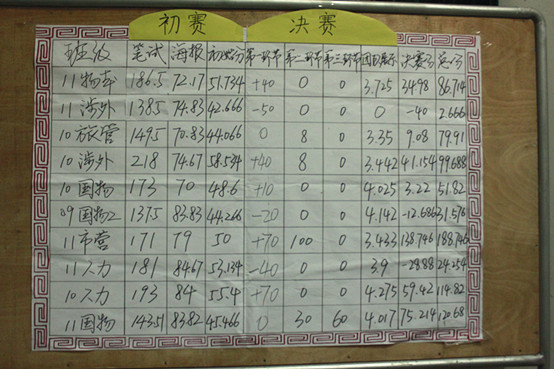 初赛 决赛
班级 笔试 海报 初始分 第一环节 第二环节 第三环节 决赛分 总分
11物本 186.5 72.17 51.734 +40 0 0 3.725 34.98 86.714
11涉外 138.5 74.83 42.666 -50 0 0 0 -40 2.666
10旅管 149.5 70.83 44.066 0 8 0 3.35 9.08 79.91
10涉外 218 74.67 58.534 +40 8 0 3.442 41.154 99.688
10国物 173 70 48.6 +10 0 0 4.025 3.22 51.82
09国物2 137.5 83.83 44.266 -20 0 0 4.142 -12.686 31.576
11市营 171 79 50 +70 100 0 3.433 138.746 188.746
11人力 181 84.67 53.134 -40 0 0 3.9 -28.88 24.254
10人力 193 84 55.4 +70 0 0 4.275 59.42 114.82
11国物 143.51 83.82 45.466 0 30 60 4.017 75.214 120.68